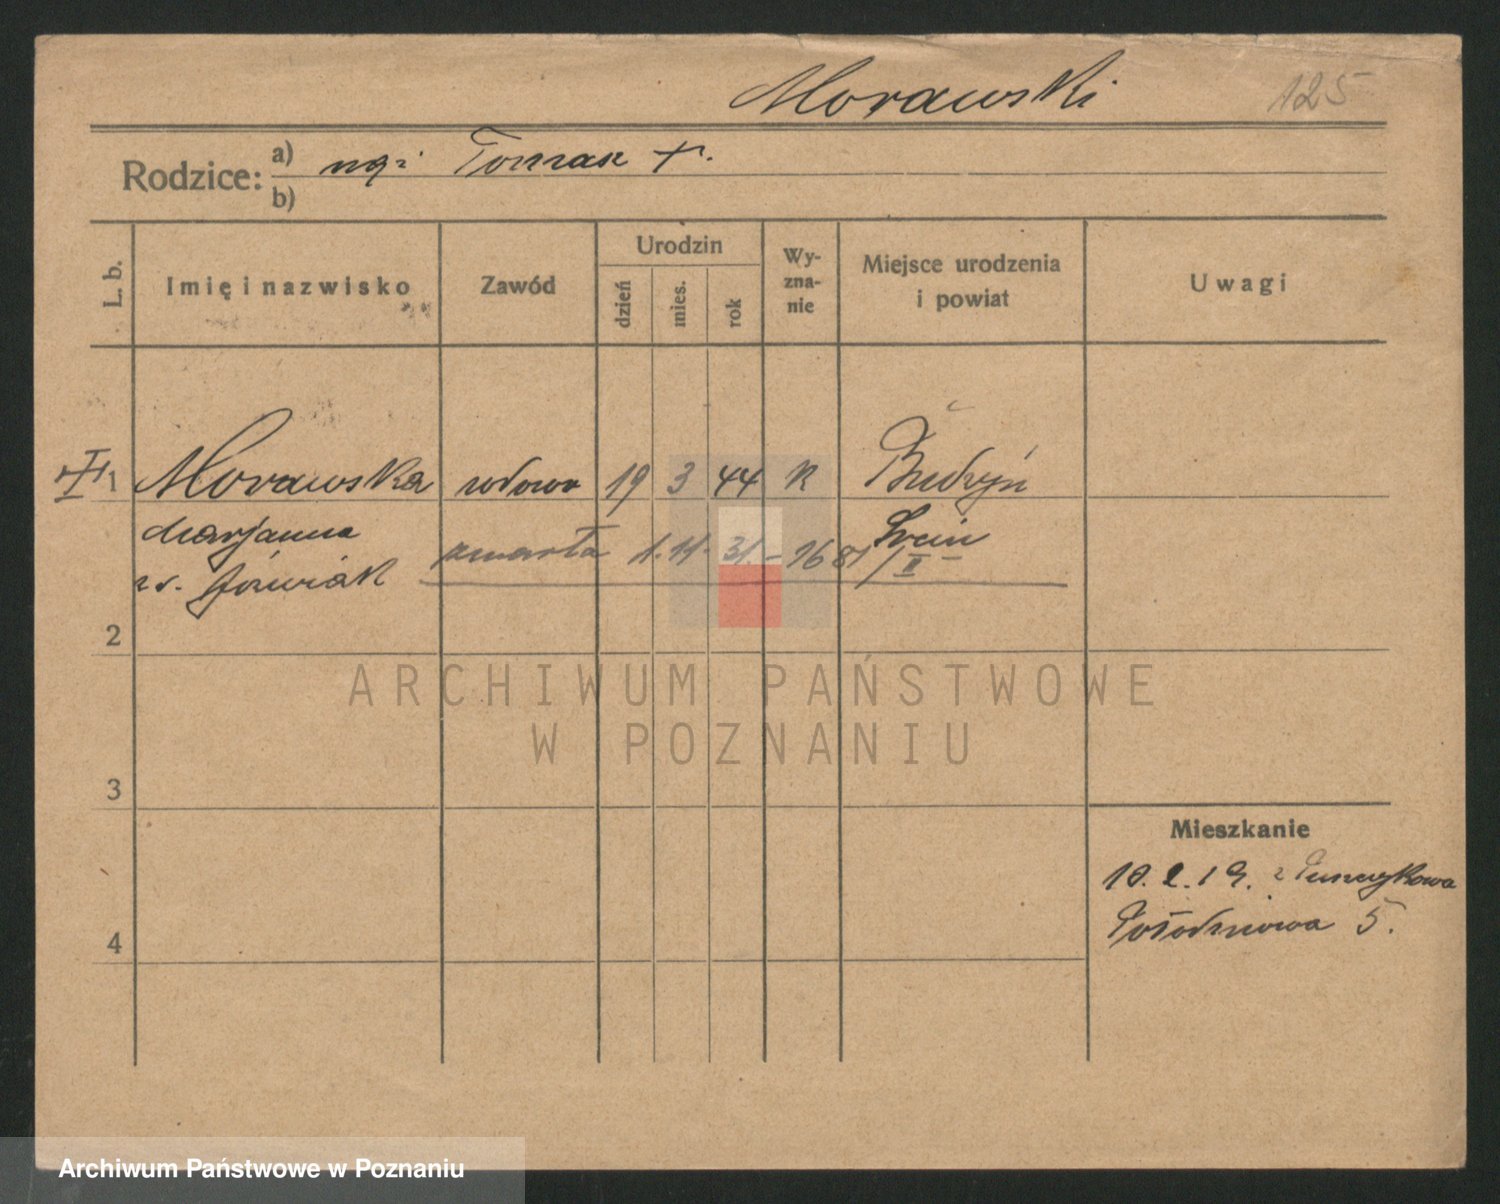 Morawski
125
Rodzice: a) mąż Tomasz +.
b)
L. b.
Imię i nazwisko
Zawód
Urodzin
dzień
mies.
rok
Wy-
zna-
nie
Miejsce urodzenia
i powiat
Uwagi
1 Morawska wdowa 19 3 44 K Budzyń
Marjanna Śrem
z d. Jóźwiak
zmarła 1.11.31. – 1681/II –
2
3
4
Mieszkanie
10.2.19. z
5.
ARCHIWUM PAŃSTWOWE
W POZNANIU
Archiwum Państwowe w Poznaniu